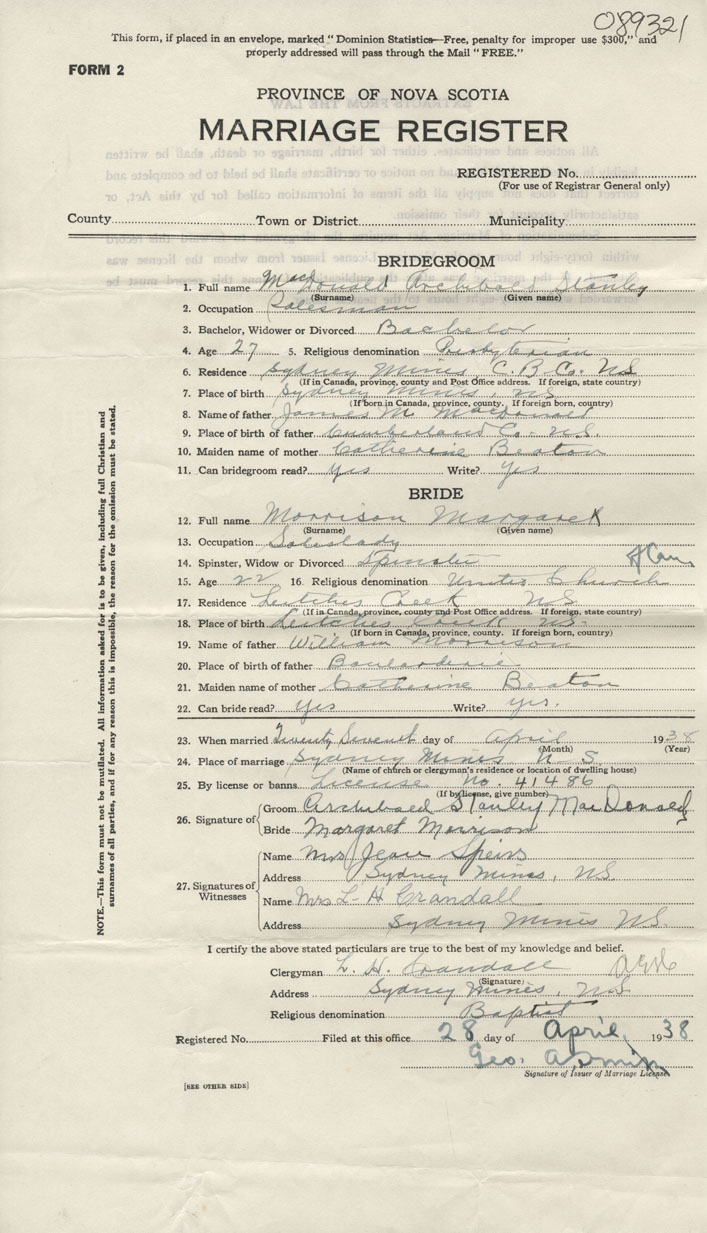 089321
This form, if placed in an envelope, marked "Dominion Statistics—Free, penalty for improper use $300," and
properly addressed will pass through the Mail "FREE."
FORM 2
PROVINCE OF NOVA SCOTIA
MARRIAGE REGISTER
REGISTERED No.
(For use of Registrar General only)
County Town or District Municipality
BRIDEGROOM
1. Full name MacDonald Archibald Stanley
(Surname) (Given name)
2. Occupation Salesman
3. Bachelor, Widower or Divorced Bachelor
4. Age 27 5. Religious denomination Presbyterian
6. Residence Sydney Mines, C. B. Co. N.S.
(If in Canada, province, county and Post Office address. If foreign, state country)
7. Place of birth Sydney Mines, N.S.
(If born in Canada, province, county. If foreign born, country)
8. Name of father James M. MacDonald
9. Place of birth of father Cumberland Co. N.S.
10. Maiden name of mother Catherine Beaton
11. Can bridegroom read? Yes Write? Yes
BRIDE
12. Full name Morrison Margaret
(Surname) (Given name)
13. Occupation Saleslady
14. Spinster, Widow or Divorced Spinster
15. Age 22 16. Religious denomination United Church
17. Residence Leitches Creek N.S.
(If in Canada, province, county and Post Office address. If foreign, state country)
18. Place of birth Leitches Creek N.S.
(If born in Canada, province, county. If foreign born, country)
19. Name of father William Morrison
20. Place of birth of father Boularderie
21. Maiden name of mother Catherine Beaton
22. Can bride read? Yes Write? Yes.
23. When married Twenty Seventh day of April 1938
(Month) (Year)
24. Place of marriage Sydney Mines N.S.
(Name of church or clergyman's residence or location of dwelling house)
25. By license or banns License No. 41486
(If by license, give number)
26. Signature of Groom Archibald Stanley MacDonald
Bride Margaret Morrison
27. Signatures of Witnesses
Name Mrs Jean Speirs
Address Sydney Mines, N.S.
Name Mrs L. H Crandall
Address Sydney Mines N.S.
I certify the above stated particulars are true to the best of my knowledge and belief.
Clergyman L. H. Crandall
(Signature)
Address Sydney Mines, N.S.
Religious denomination Baptist
Registered No. Filed at this office 28 day of April 1938
Geo. A
Signature of Issuer of Marriage License
[SEE OTHER SIDE]
NOTE.—This form must not be mutilated. All information asked for is to be given, including full Christian and
surnames of all parties, and if for any reason this is impossible, the reason for the omission must be stated.